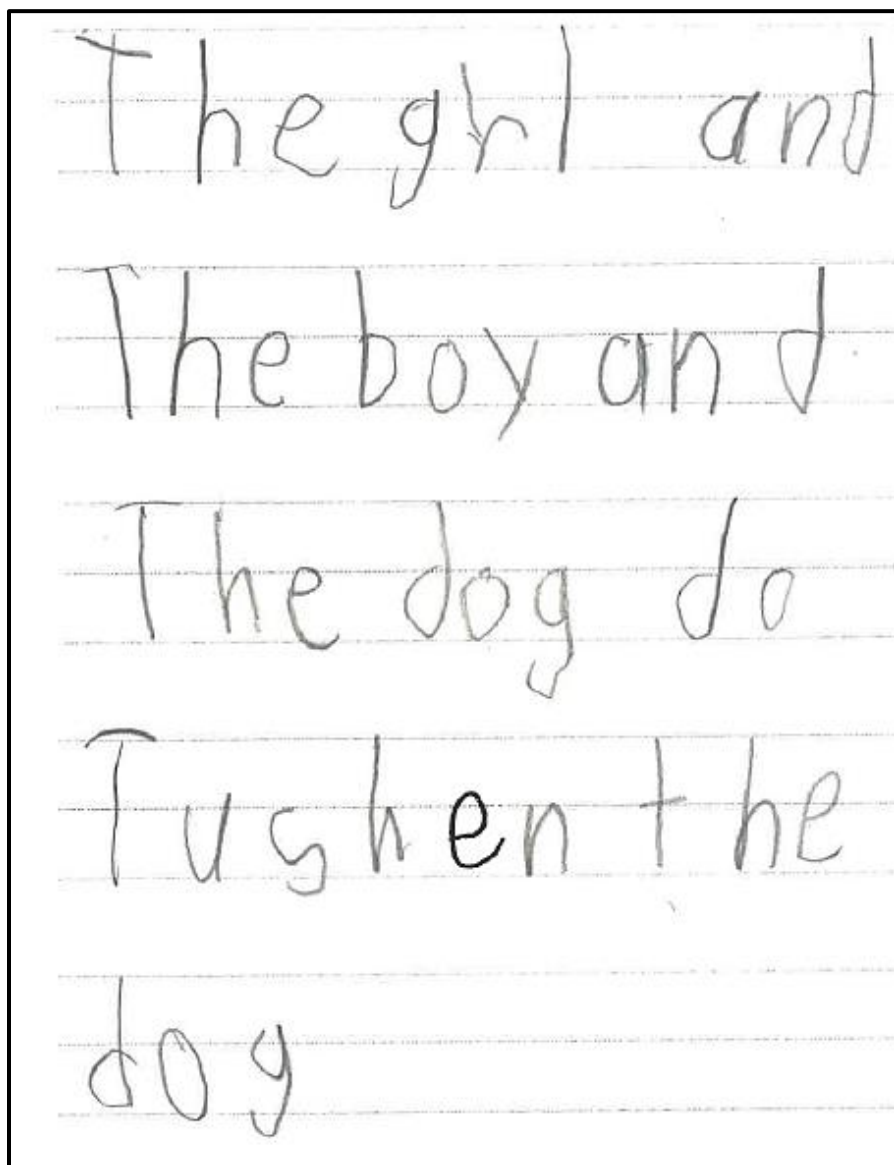 The grl and
The boy and
The dog do
Tushen the
dog